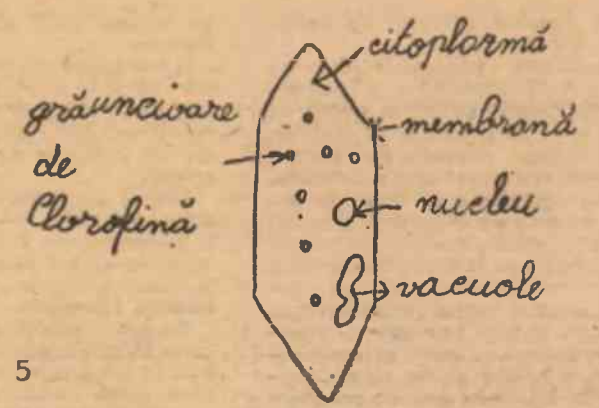 citoplarmă
grăuncioare
de
Clorofină
membrană
nucleu
vacuole
5